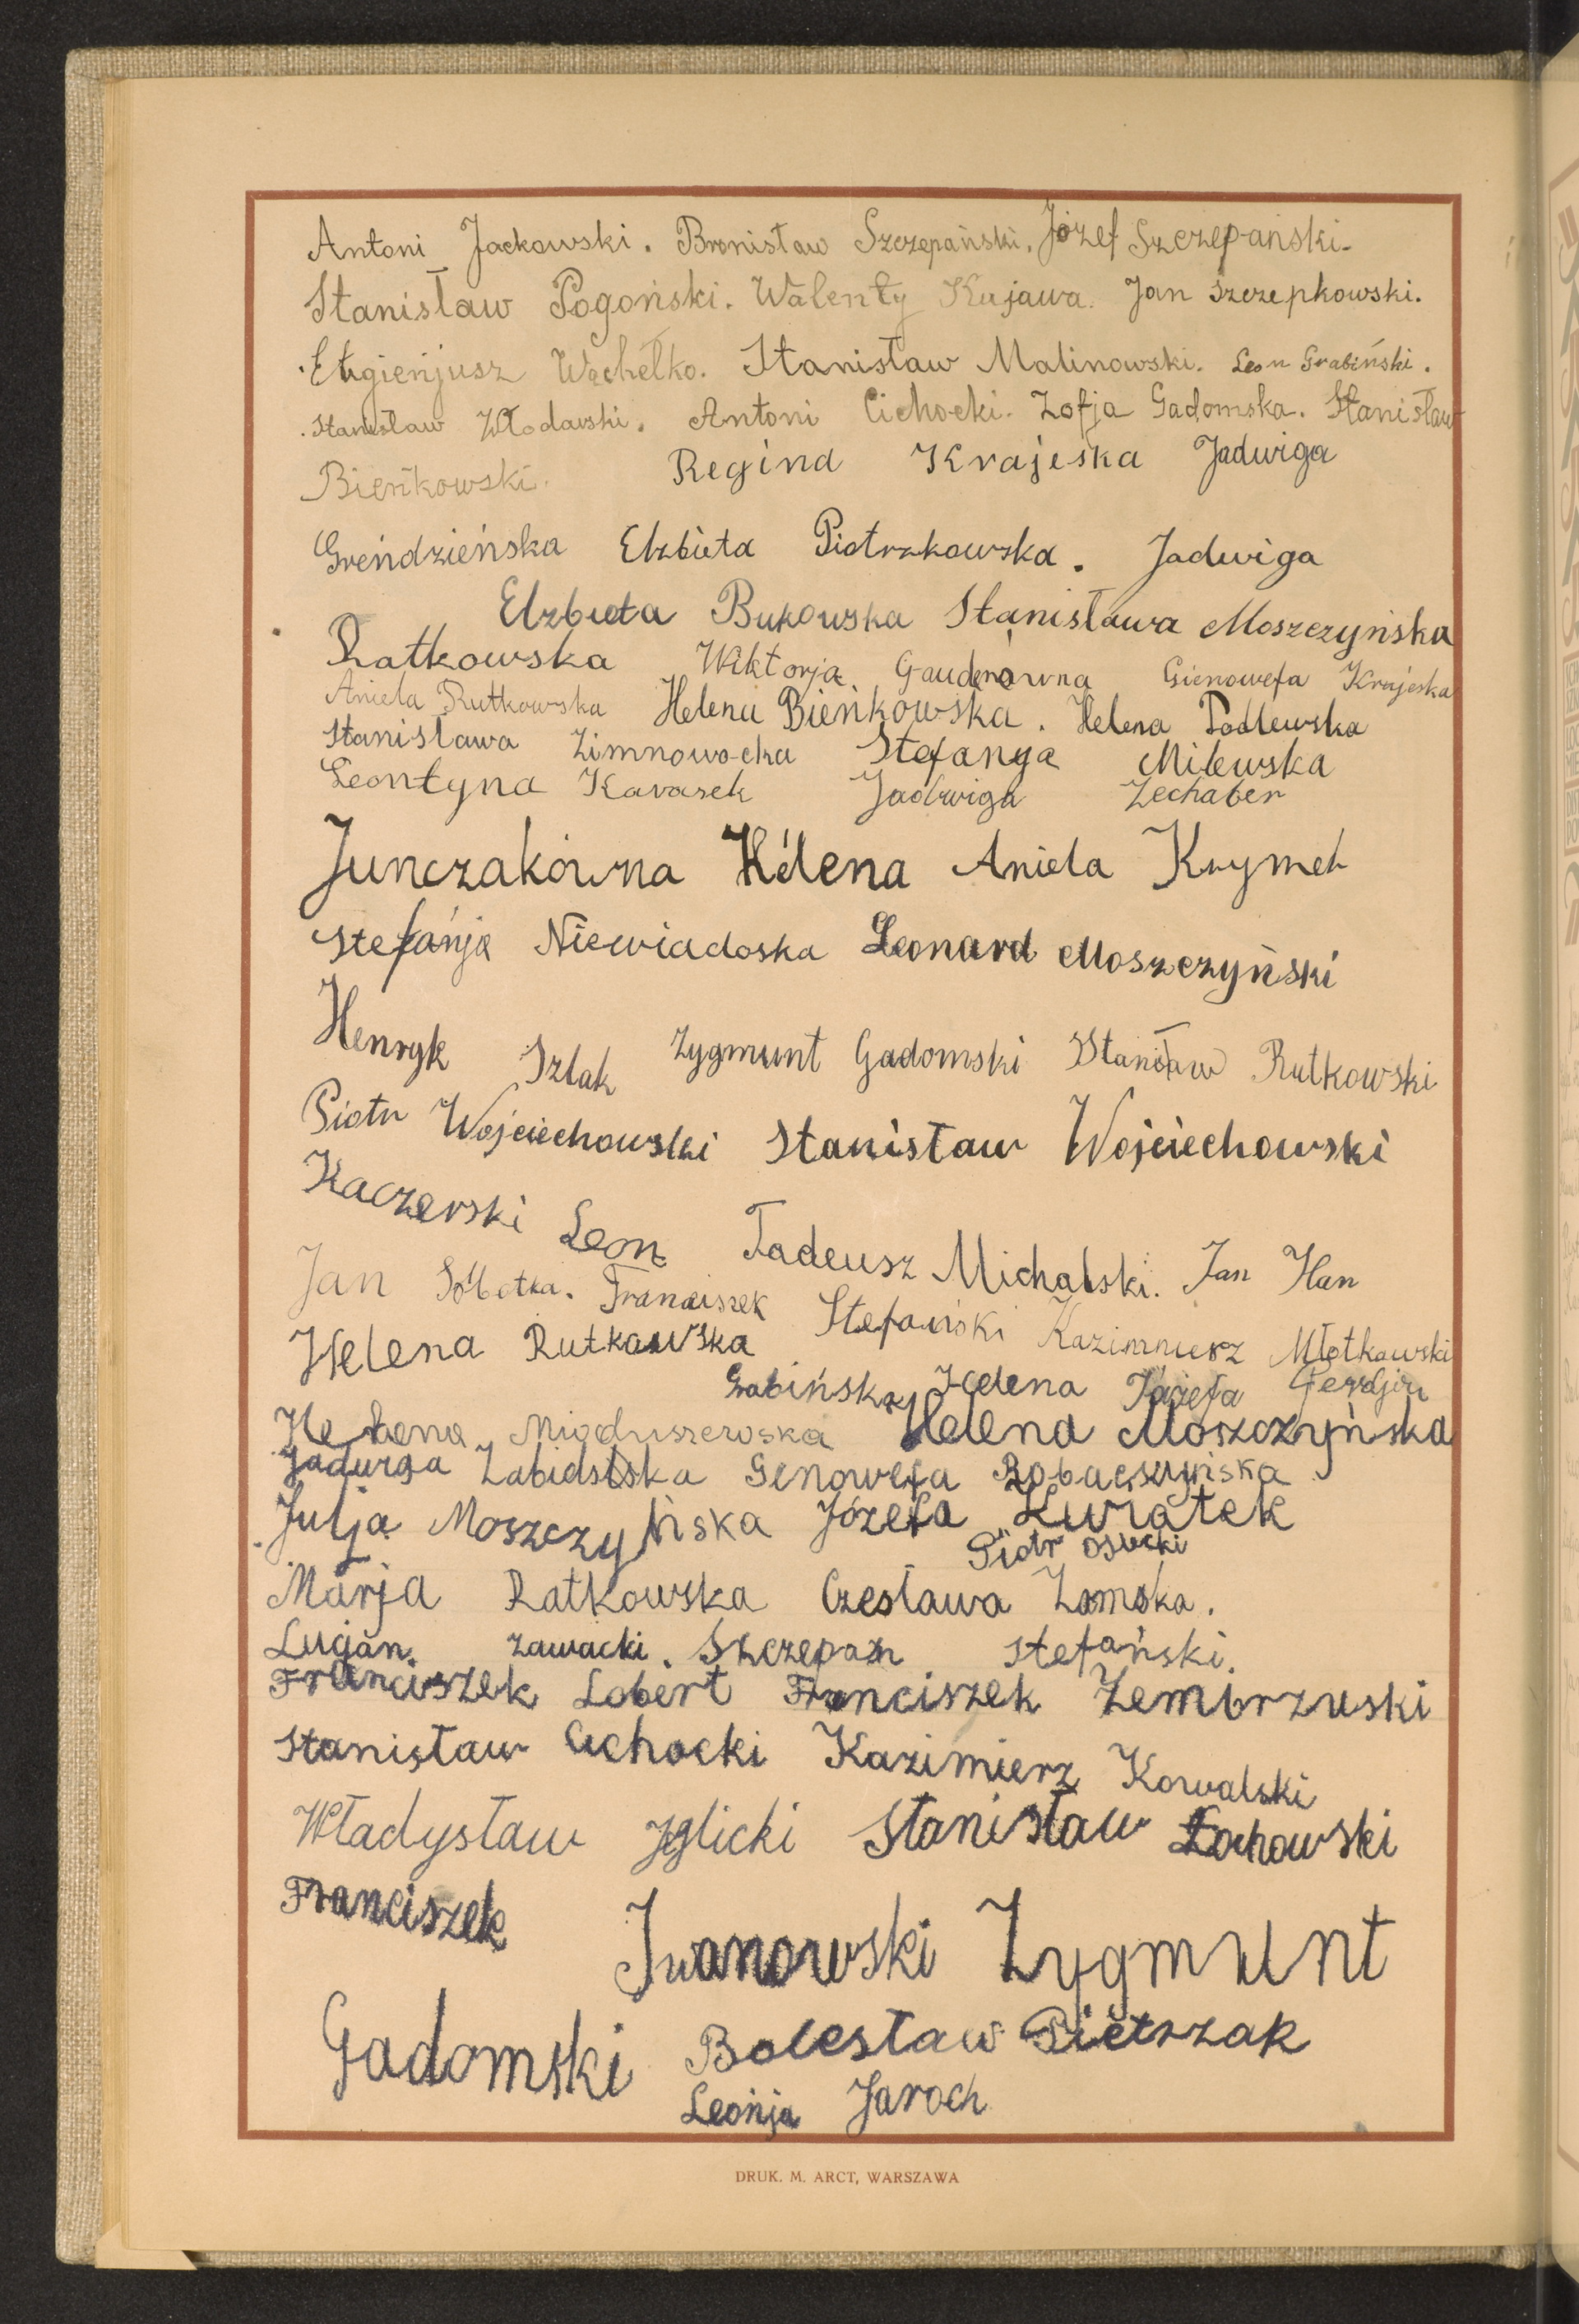 Antoni Jackowski. Bronisław Szczepański. Józef Szczepański.
Stanisław Pogoński. Walenty Kujawa. Jan Szczepkowski.
Eugienjusz Wachełko. Stanisław Malinowski. Leon Grabiński.
Stanisław Włodawski. Antoni Cichocki. Zofja Gadomska. Stanisław
Bieńkowski. Regina Krajeska Jadwiga
Greńdzieńska Elzbieta Piotrzkowska. Jadwiga
Elzbieta Bukowska Stanisława Moszczyńska
Ratkowska Wiktorja Gauderówna Gienowefa Krajeska
Aniela Rutkowska Helena Bieńkowska. Helena Podlewska
Stanisława Zimnowocka Stefanja Milewska
Leontyna Kavasek Jadwiga Zechaber
Junczakówna Helena Aniela Krymek
Stefanja Niewiadoska Leonard Moszczyński
Henryk Szlak Zygmunt Gadomski Stanisław Rutkowski
Piotr Wojciechowski Stanisław Wojciechowski
Kaczerski Leon Tadeusz Michalski. Jan Han
Jan Sobotka. Franciszek Stefański Kazimierz Młotkowski
Helena Rutkowska
Grabińska Helena Józefa
Helena Mioduszewska Helena Moszczyńska
Jadwiga Genowefa Robaczyńska
Julja Moszczyńska Józefa Kurątek
Piotr Osucki
Marja Ratkowska Czesława Zamska.
Lucjan Zawacki. Szczepan Stefański.
Franciszek Lobert Franciszek Zembrzuski
Stanisław Cichocki Kazimierz Kowalski
Władysław Jglicki Stanisław Łochowski
Franciszek Jwanowski Zygmunt
Gadomski Bolesław Pietrzak
Leonja Jaroch
DRUK. M. ARCT, WARSZAWA